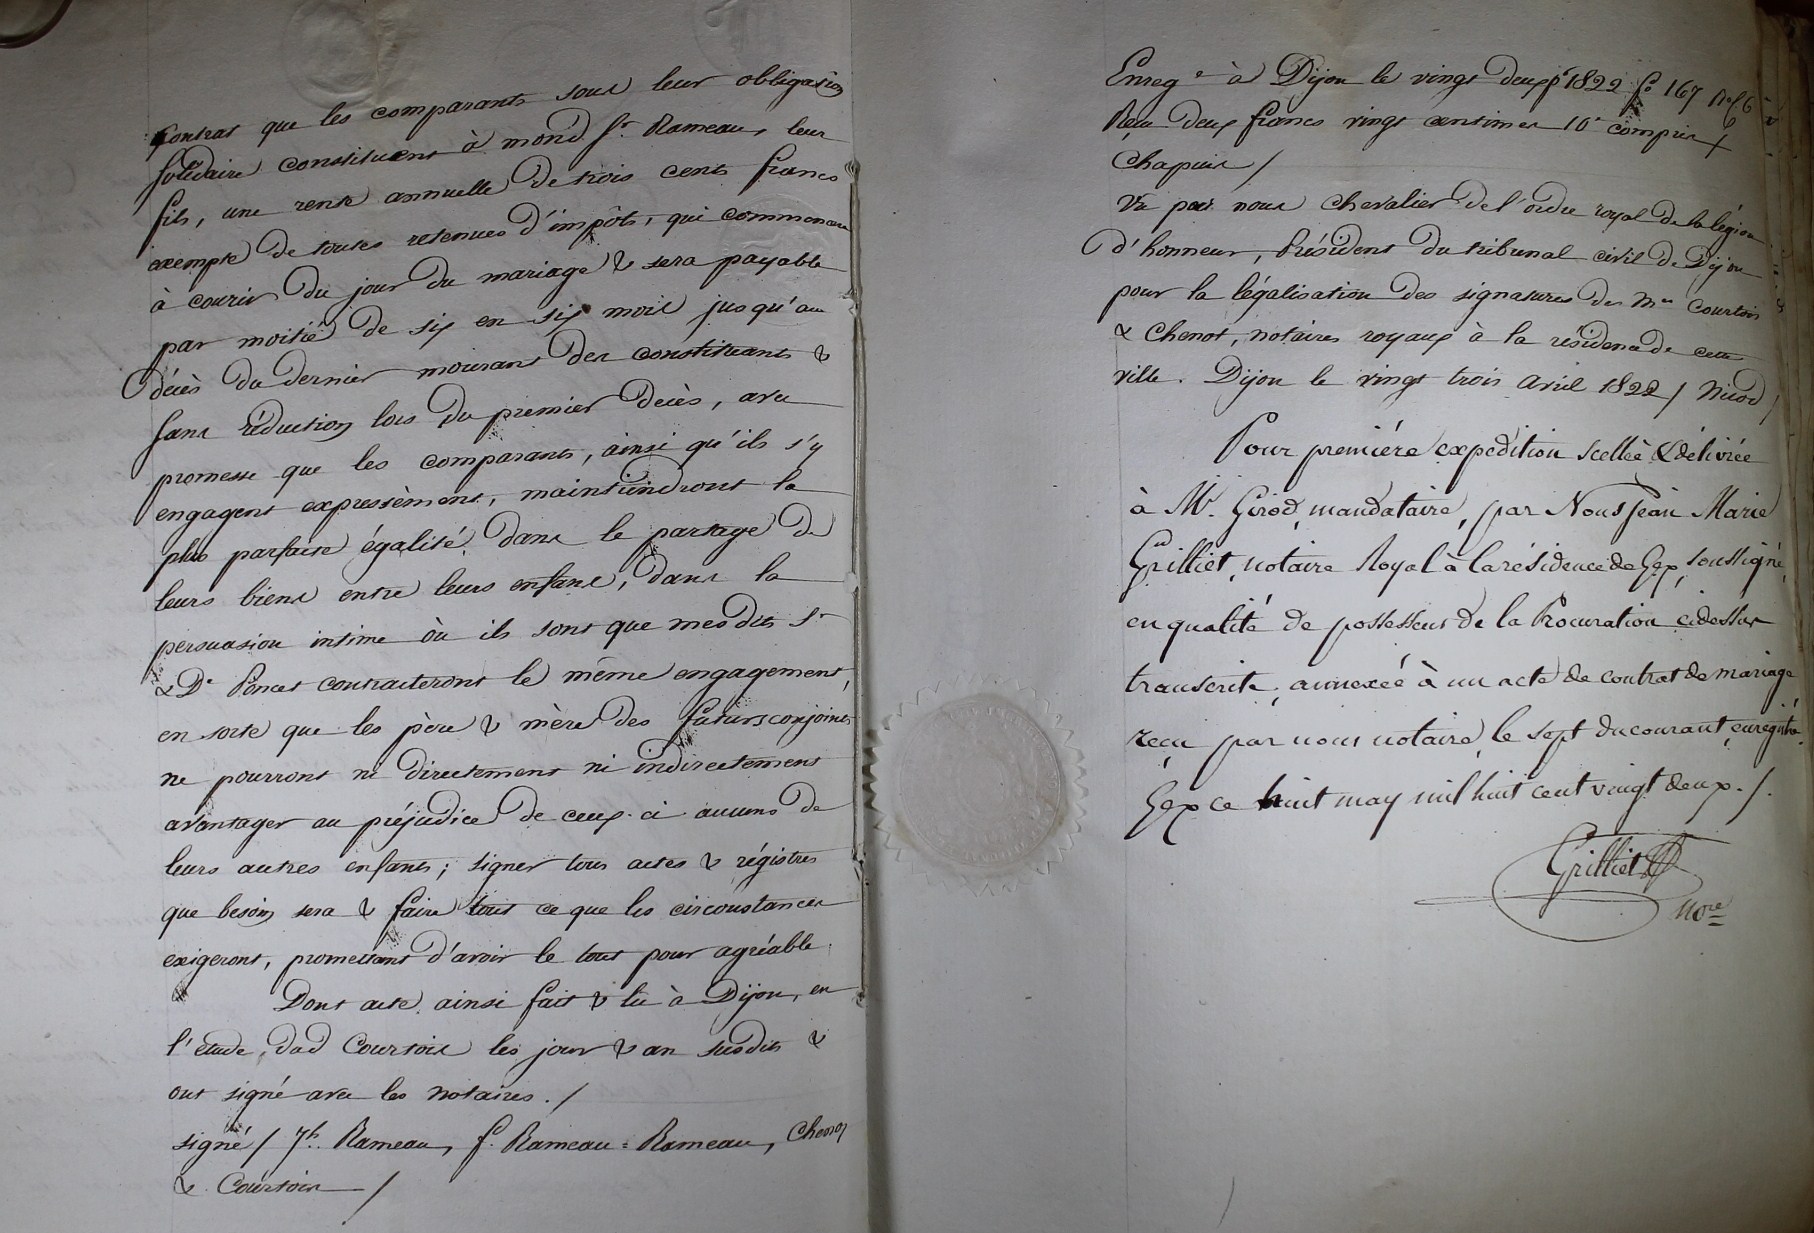 contrat que les comparants sous leur obligation
solidaire constituent à mond. Sr. Rameau, leur
fils, une rente annuelle de trois cents francs
exempte de toutes retenues d'impôts, qui commencera
à courir du jour du mariage & sera payable
par moitié de six en six mois jusqu'au
décès du dernier mourant des constituants &
sans réduction lors du premier décès, avec
promesse que les comparants, ainsi qu'ils s'y
engagent expressèment, maintiendront la
plus parfaite égalité dans le partage de
leurs biens entre leurs enfans, dans la
persuasion intime où ils sont que mesdits Sr
& De Poncet contracteront le même engagement,
en sorte que les père & mère des futurs conjoints
ne pourront ni directement ni indirectement
avantager au préjudice de ceux-ci aucuns de
leurs autres enfants; signer tous actes & régistres
que besoin sera & faire tout ce que les circonstances
exigeront, promettant d'avoir le tout pour agréable.
Dont acte ainsi fait & lu à Dijon, en
l'étude dud. Courtois les jour & an susdits &
ont signé avec les notaires. /
signé / Th. Rameau, f. Rameau = Rameau, Chenot
& Courtois /
Enregé à Dijon le vingt deux 1822 fo 167
Reçu deux francs vingt centimes 10e compris
Chapuis /
Vu par nous chevalier de l'ordre royal de la légion
d'honneur, Président du tribunal civil de Dijon
pour la légalisation des signatures des Mes Courtois
& Chenot, notaires royaux à la résidence de cette
ville. Dijon le vingt trois avril 1822 /
Pour premiére expedition scellée & délivrée
à Mr. Girod, mandataire, par Nous Jean Marie
Grilliet, notaire Royal à la résidence de Gex, soussigné,
en qualité de possesseur de la Procuration cidessus
transcrite, annexée à un acte de contrat de mariage
reçu par nous notaire, le sept du courant, enregistré.
Gex ce huit may mil huit cent vingt deux. /.
Grilliet
Nore